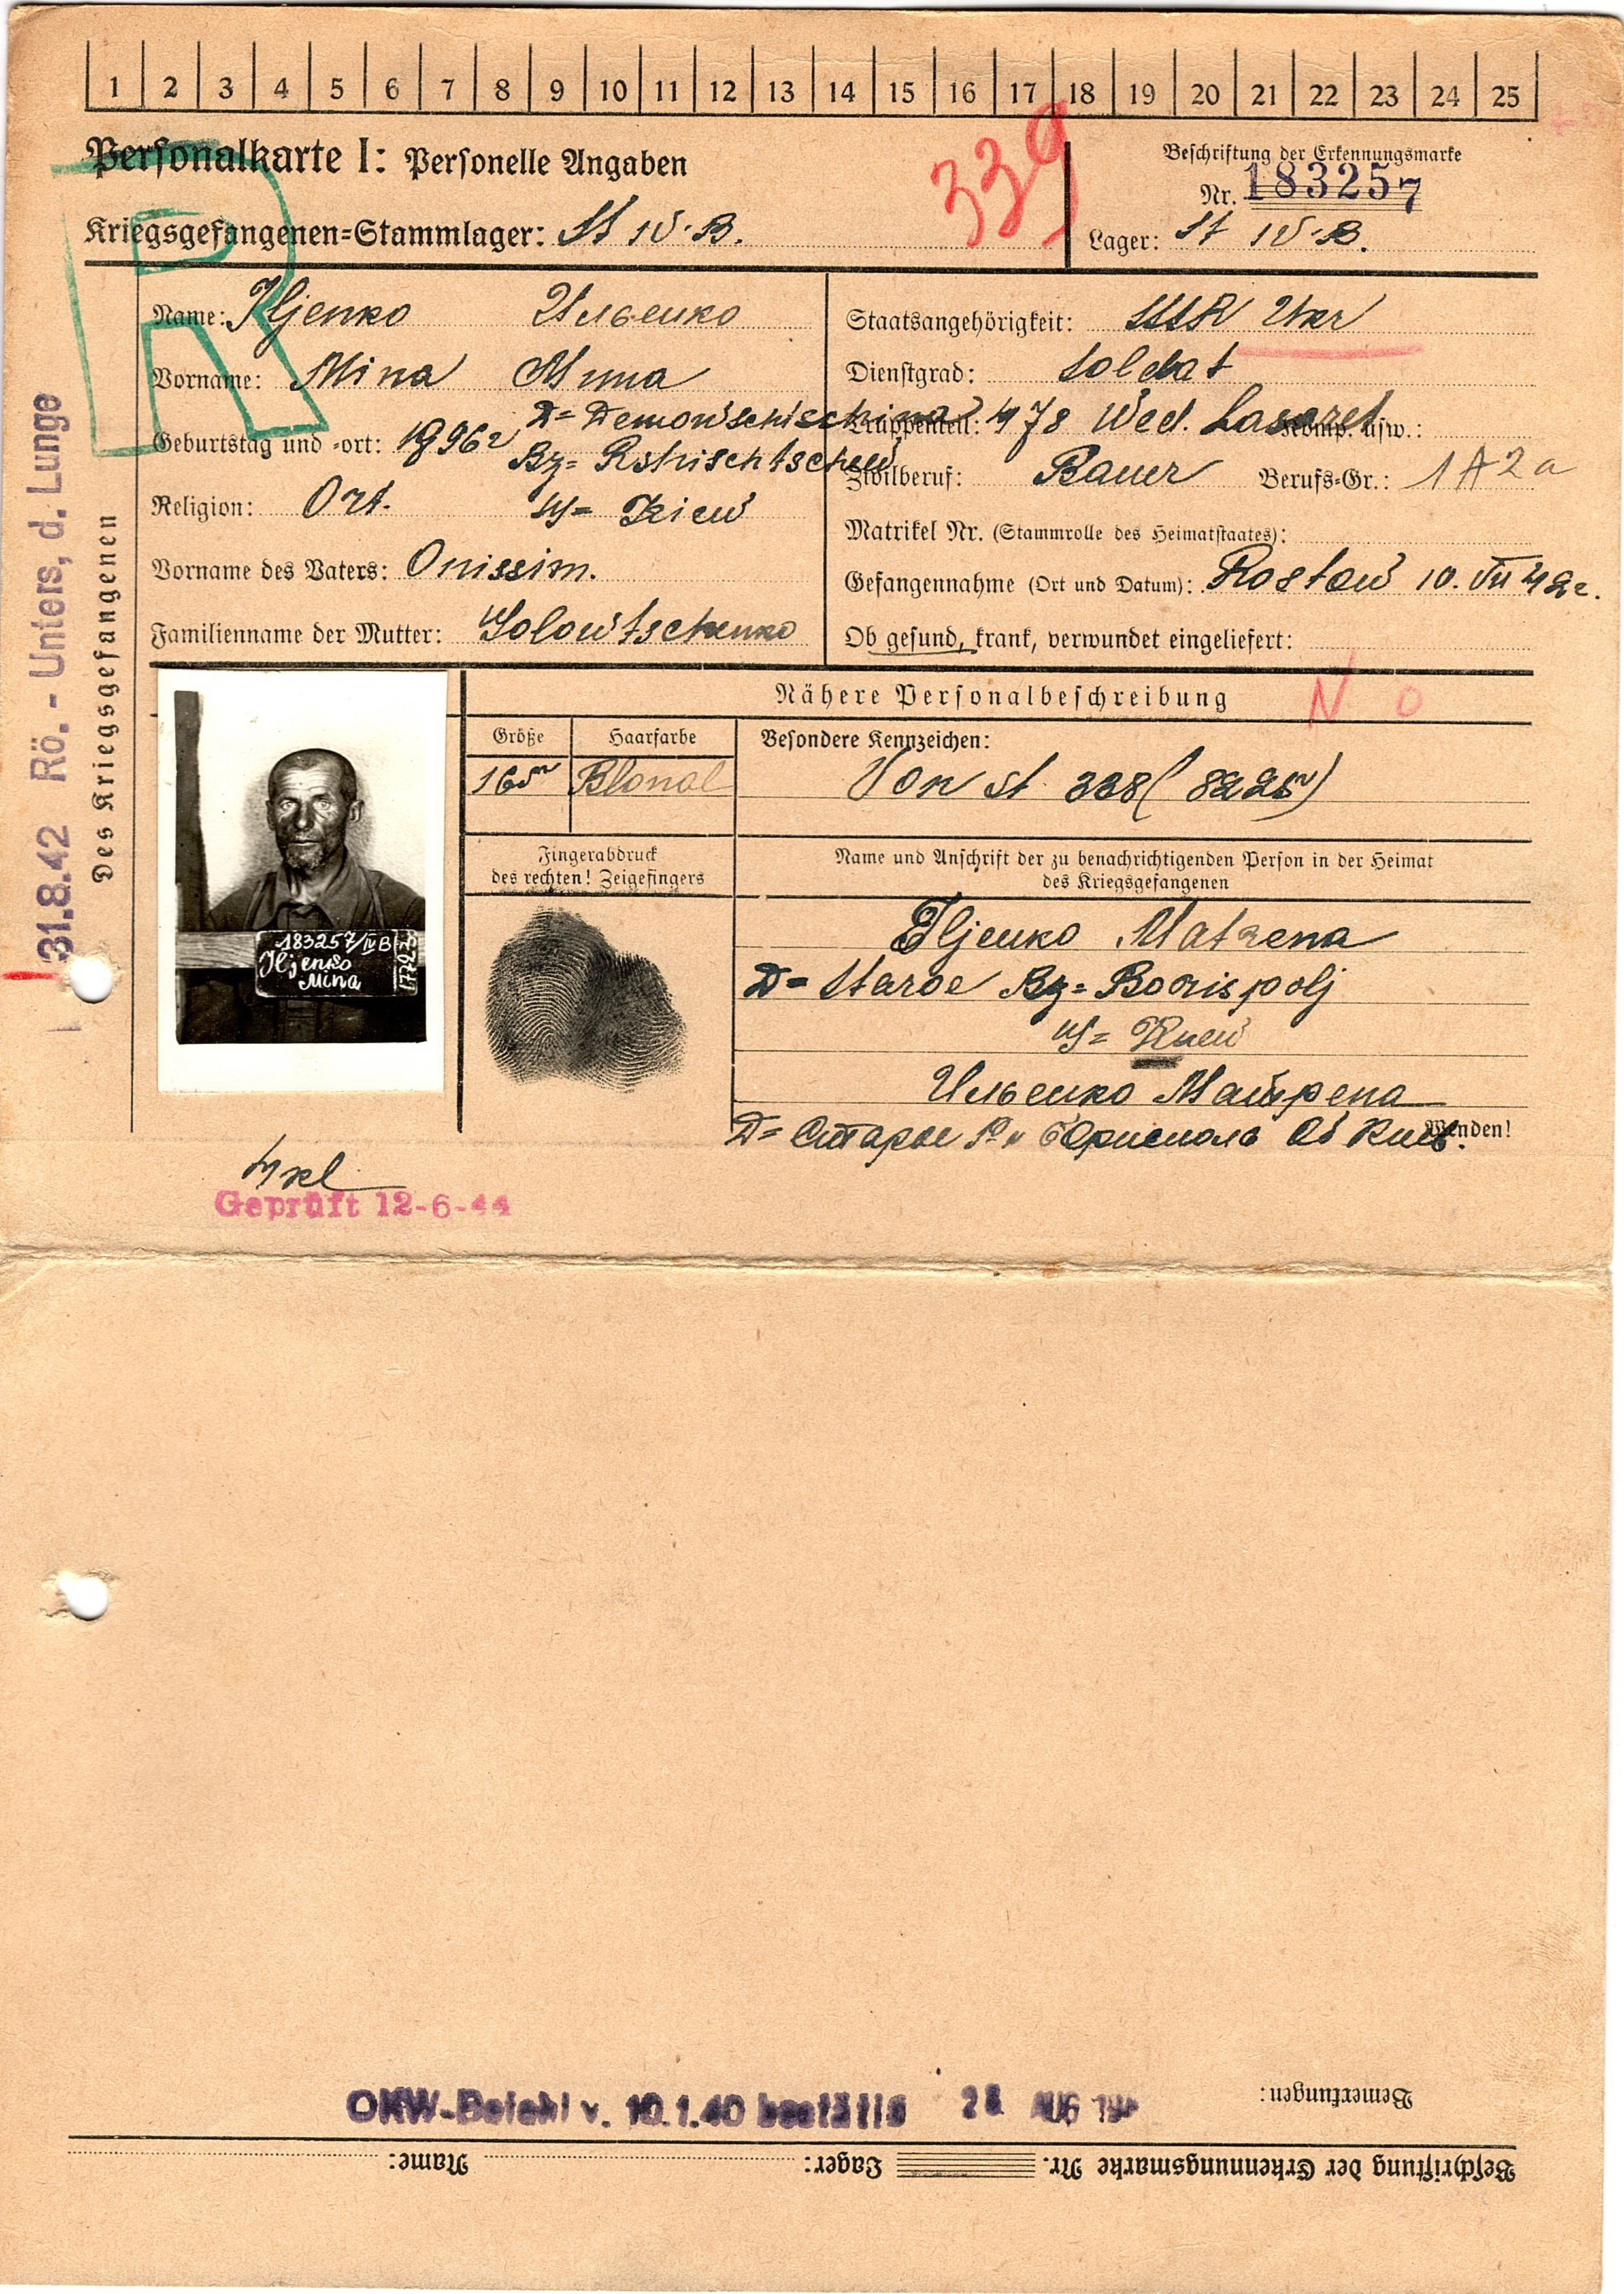 1 2 3 4 5 6 7 8 9 10 11 12 13 14 15 16 17 18 19 20 21 22 23 24 25
Personalkarte I: Personelle Angaben
339
Beschriftung der Erkennungsmarke
Nr. 183257
Kriegsgefangenen-Stammlager: St IV. B.
Lager: St IV. B.
R
Name: Iljenko Ильенко
Staatsangehörigkeit: SSSR Ukr
Vorname: Mina Мина
Dienstgrad: Soldat
D= Demowschischina
Truppenteil: 478 Wed. Lasaret Komp. usw.:
Geburtstag und -ort:
Bz= Rshischtschew
Zivilberuf: Bauer Berufs-Gr.: 1 A 2 a
Religion: Ort. G= Kiew
Matrikel Nr. (Stammrolle des Heimatstaates):
Vorname des Vaters: Onissim.
Gefangennahme (Ort und Datum): Rostow 10. VII 42г.
Familienname der Mutter: Golowtschenko
Ob gesund, krank, verwundet eingeliefert:
Des Kriegsgefangenen
31.8.42 Rö.- Unters, d. Lunge
Nähere Personalbeschreibung
N 0
Größe Haarfarbe
165 Blond
Besondere Kennzeichen:
Von St. 338 (8225)
Fingerabdruck
des rechten! Zeigefingers
Name und Anschrift der zu benachrichtigenden Person in der Heimat
des Kriegsgefangenen
183257/IV B
Iljenko
Mina
Iljenko Matrena
D= Staroe Bz= Borispolj
G= Kiew
Ильенко Матрена
Д= Старое Р-н Борисполь Об Киев.
Wenden!
Geprüft 12-6-44
OKW-Befehl v. 10.1.40 bestätig
AUG
Bemerkungen:
Beschriftung der Erkennungsmarke Nr. Lager: Name: